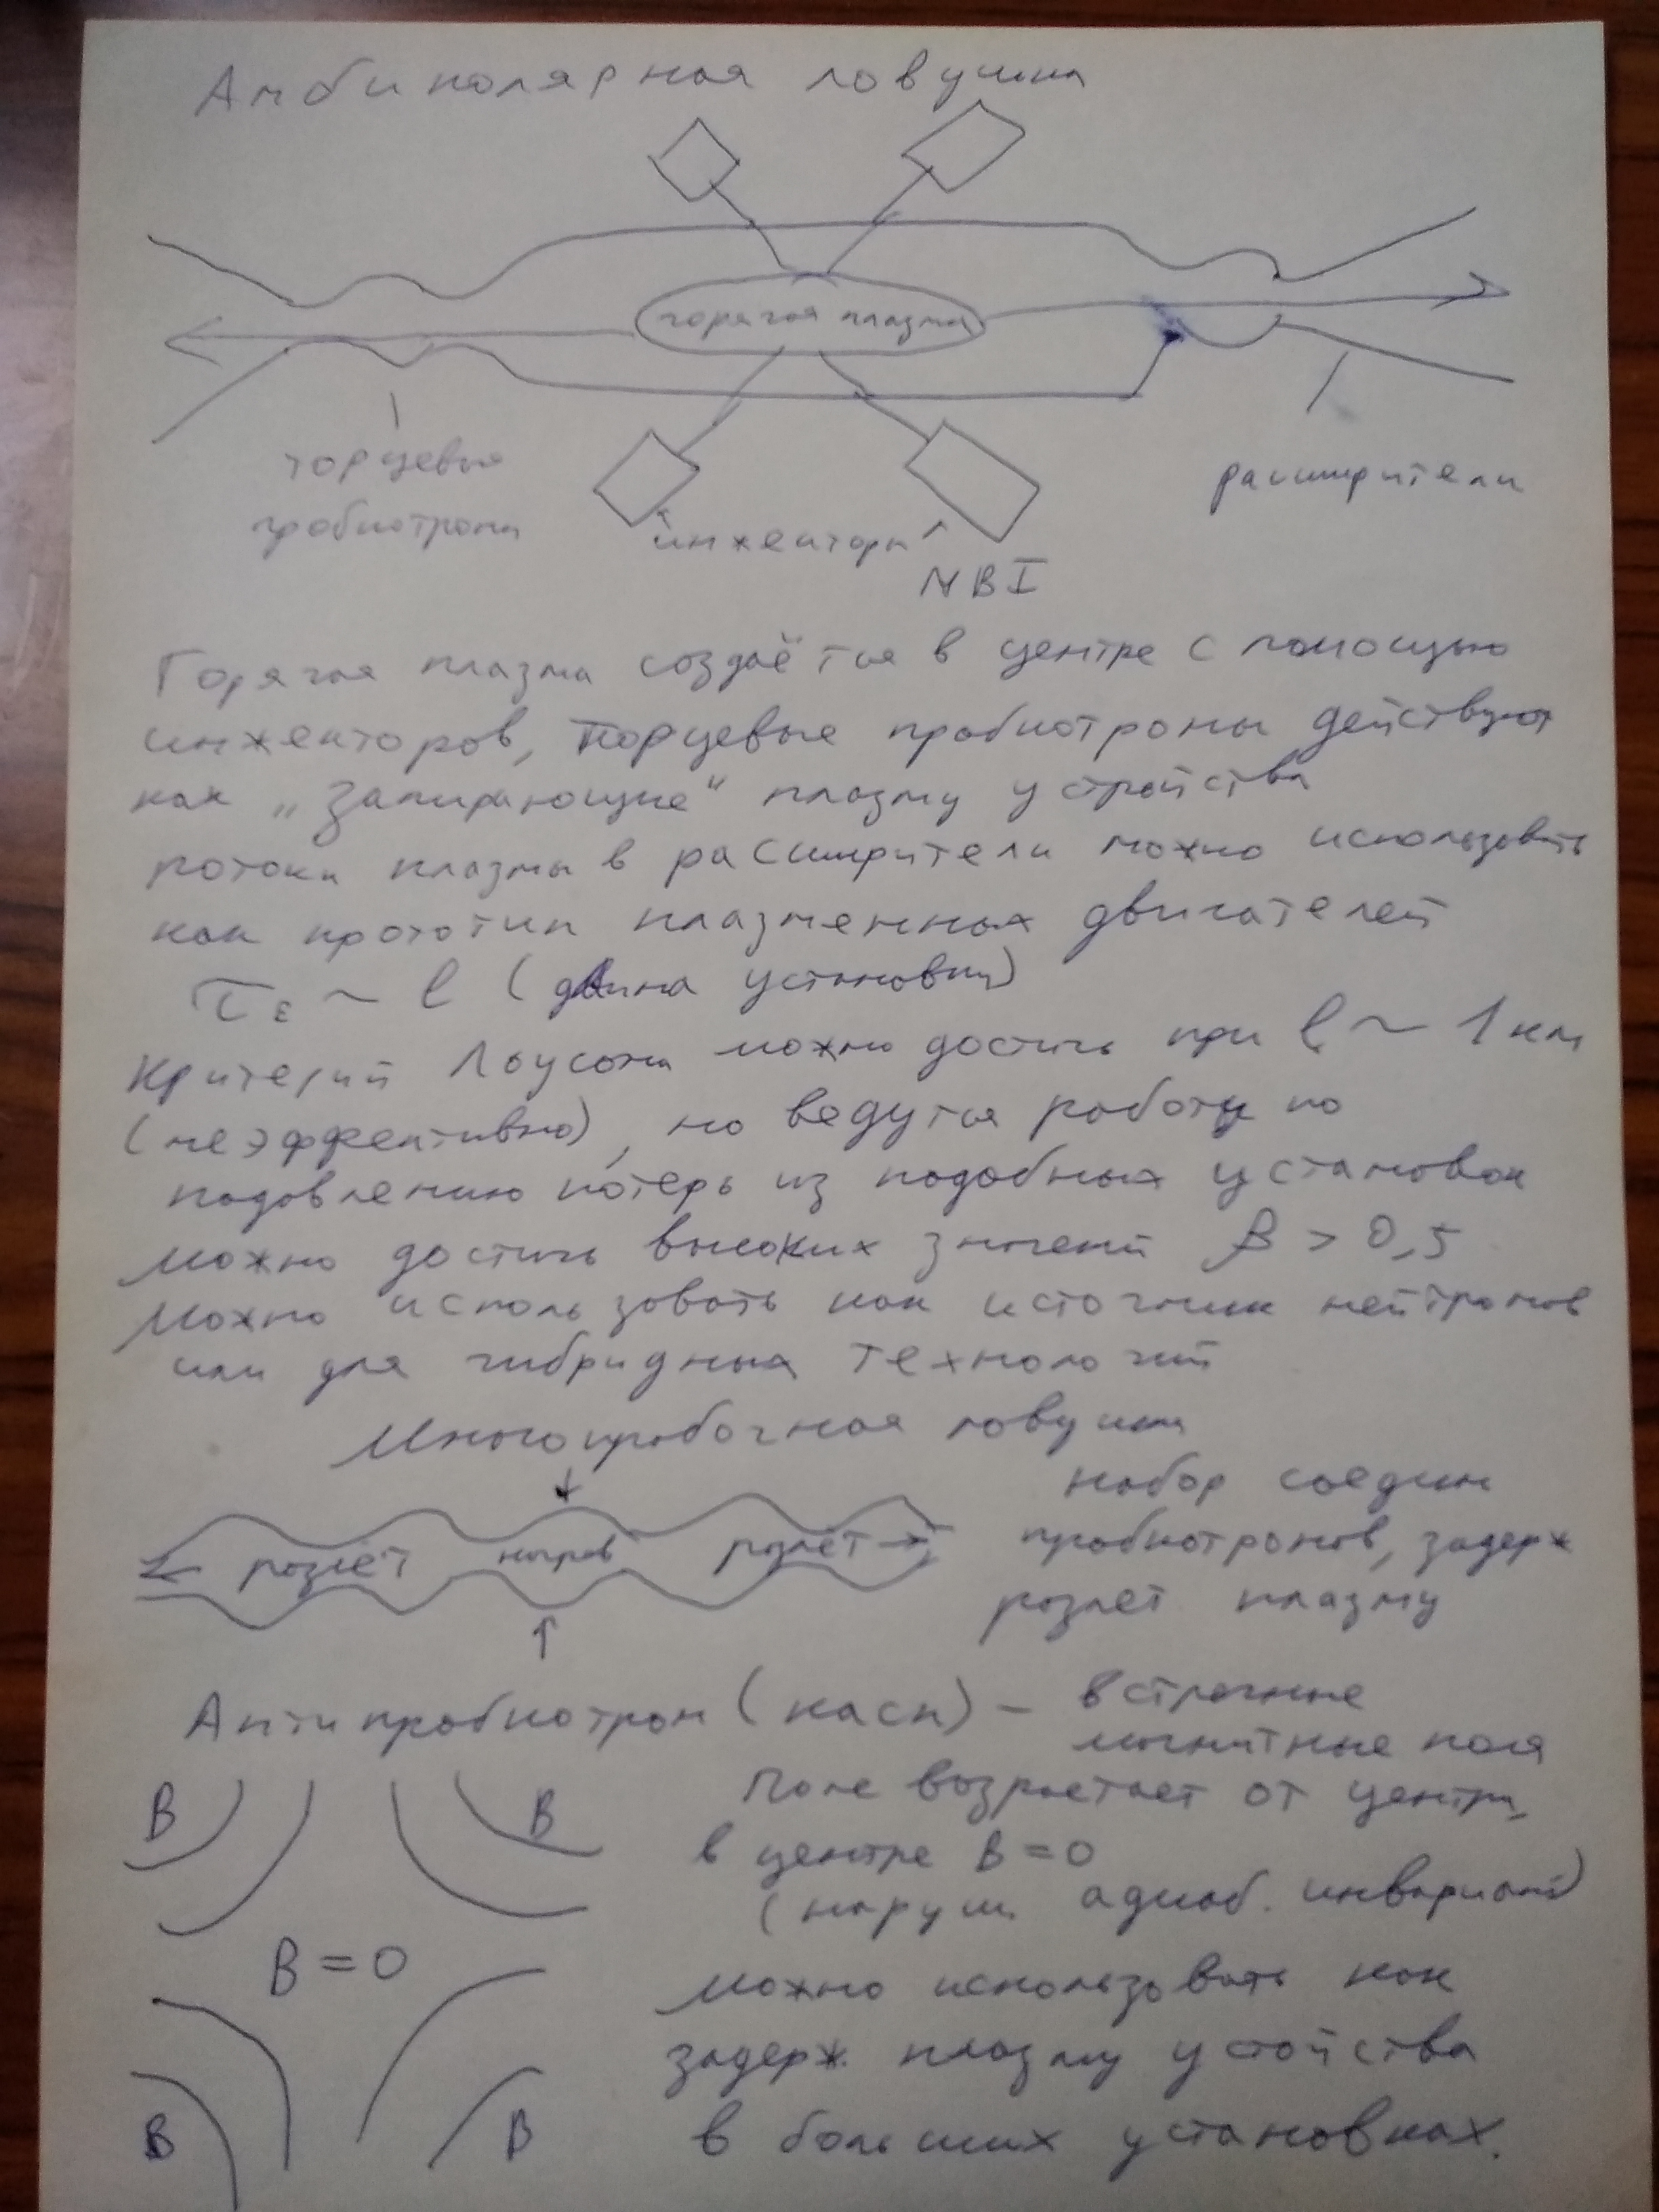 Амбиполярная ловушка
горячая плазма
торцевые
пробкотроны
инжекторы
NBI
расширители
Горячая плазма создаётся в центре с помощью
инжекторов, Торцевые пробкотроны действуют
как „Запирающие“ плазму устройства
потоки плазмы в расширители можно использовать
как прототип плазменных двигателей
τε ~ l (длина установки)
Критерий Лоусона можно достичь при l ~ 1 км
(неэффективно), но ведутся работы по
подавлению потерь из подобных установок
Можно достичь высоких значений β > 0,5
Можно использовать как источник нейтронов
или для гибридных технологий
Многопробочная ловушка
разлёт нагрев разлёт
набор соедин
пробкотронов, задерж
разлет плазму
Антипробкотрон (касп) – встречные
магнитные поля
B B
Поле возрастает от центра,
в центре B = 0
(наруш. адиаб. инвариант)
B = 0
Можно использовать как
задерж. плазму устойства
в больших установках.
B B